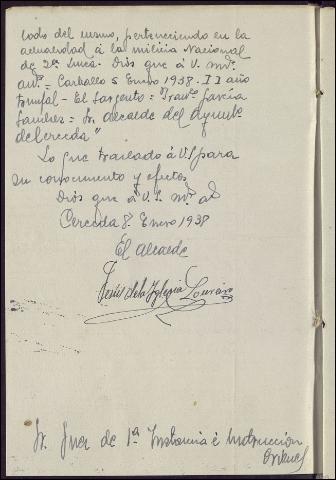 todo del mismo, perteneciendo en la
actualidad á la milicia Nacional
de 2ª Linea. Dios gue á V. ms.
as. = Carballo 5 Enero 1938. II año
triunfal - El Sargento = Franco García
Sanches = Sr. Alcalde del Ayunto
de Cerceda"
Lo que traslado á V.S para
su conocimiento y efectos
Dios gue á V.S. ms. as
Cerceda 8. Enero 1938
El Alcalde
Jesús de la Iglesia
Sr. Juez de 1ª Instancia é Instrucción
Ordenes